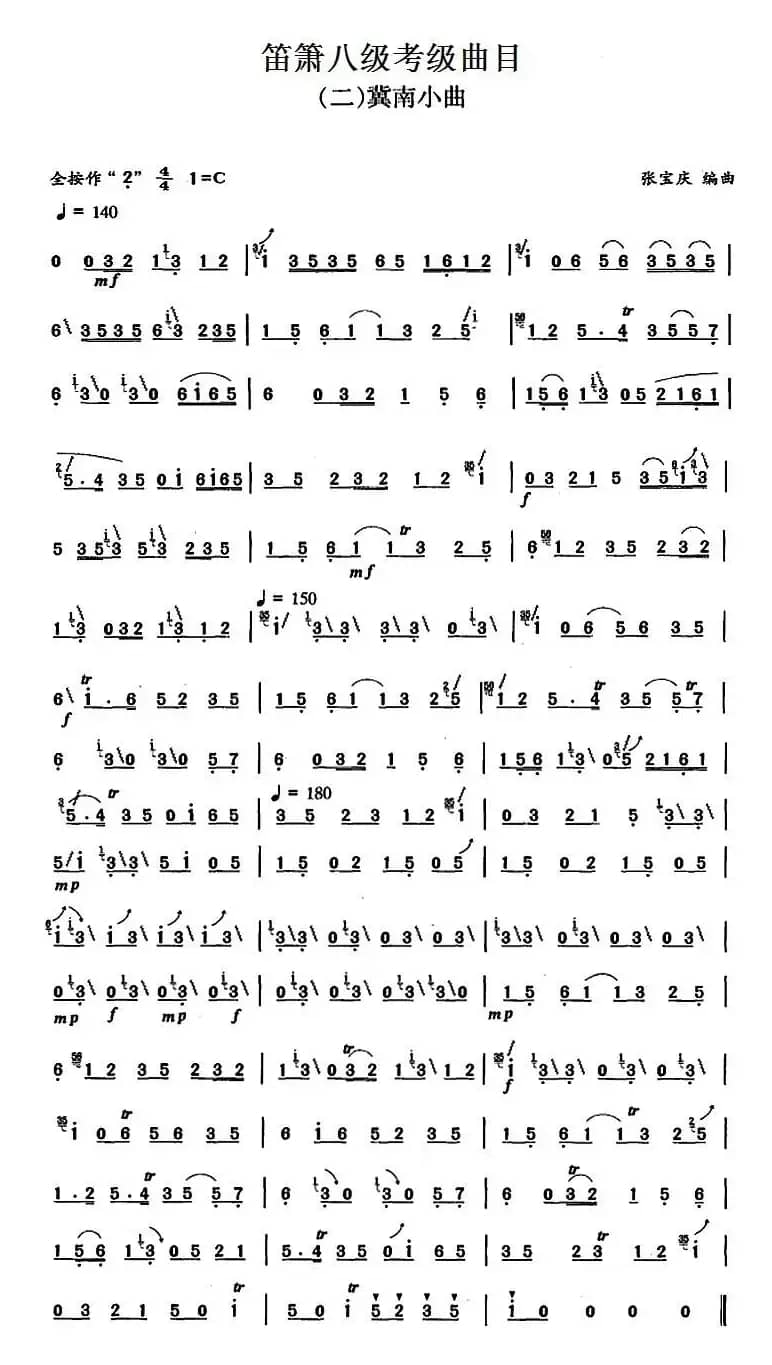 笛箫八级考级曲目
(二)冀南小曲
全按作“2” 4/4 1=C
张宝庆 编曲
♩= 140
0 032 13 12 | i 3535 65 1612 | i 06 56 3535 |
mf
6 3535 63 235 | 15 61 13 25 | 12 5.4 3557 |
6 30 30 6i65 | 6 032 1 5 6 | 156 13 05 2161 |
5.4 35 0i 6i65 | 35 232 12 i | 03 21 5 35i3 |
f
5 353 53 235 | 15 61 13 25 | 6 12 35 232 |
mf
♩= 150
13 032 13 12 | i 33 33 03 | i 06 56 35 |
6 i.6 52 35 | 15 61 13 25 | 12 5.4 35 57 |
f
6 30 30 57 | 6 032 1 5 6 | 156 13 05 2161 |
♩= 180
5.4 35 0i 65 | 35 23 12 i | 03 21 5 33 |
5i 33 5i 05 | 15 02 15 05 | 15 02 15 05 |
mp
i3 i3 i3 i3 | 33 03 03 03 | 33 03 03 03 |
03 03 03 03 | 03 03 03 330 | 15 61 13 25 |
mp f mp f mp
6 12 35 232 | 13 032 13 12 | i 33 03 03 |
f
i 06 56 35 | 6 i6 52 35 | 15 61 13 25 |
1.2 5.4 35 57 | 6 30 30 57 | 6 032 1 5 6 |
156 13 05 21 | 5.4 35 0i 65 | 35 23 12 i |
03 21 50 i | 50 i 52 35 | i0 0 0 0 ‖